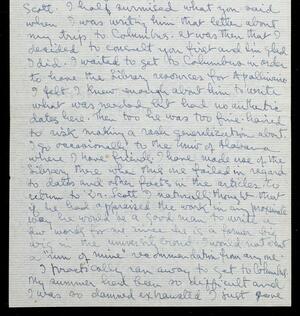 Scott. I half surmised what you said
when I was writing him that letter about
my trip to Columbus. It was then that I
decided to consult you first and I'm glad
I did. I wanted to get to Columbus in order
to have the library resources for Apollinaire
I felt I knew enough about him to write
what was needed but had no authentic
dates here. Then too he was too fine-haired
to risk making a rash generalization about
I go occasionally to the Univ of Alabama
where I have friends. I have made use of the
library there when this one failed in regard
to dates and other facts in the articles. To
return to Dr. Scott I naturally thought that
if he had appraised the work in an proximate
way he would be a good man to write
words for me since he is a former big
wig in the university crowd. I would not ask
a "run of mine" recommendation from any one.
I practically ran away to get to Columbus.
My summer had been so difficult and
I was so damned exhausted I just